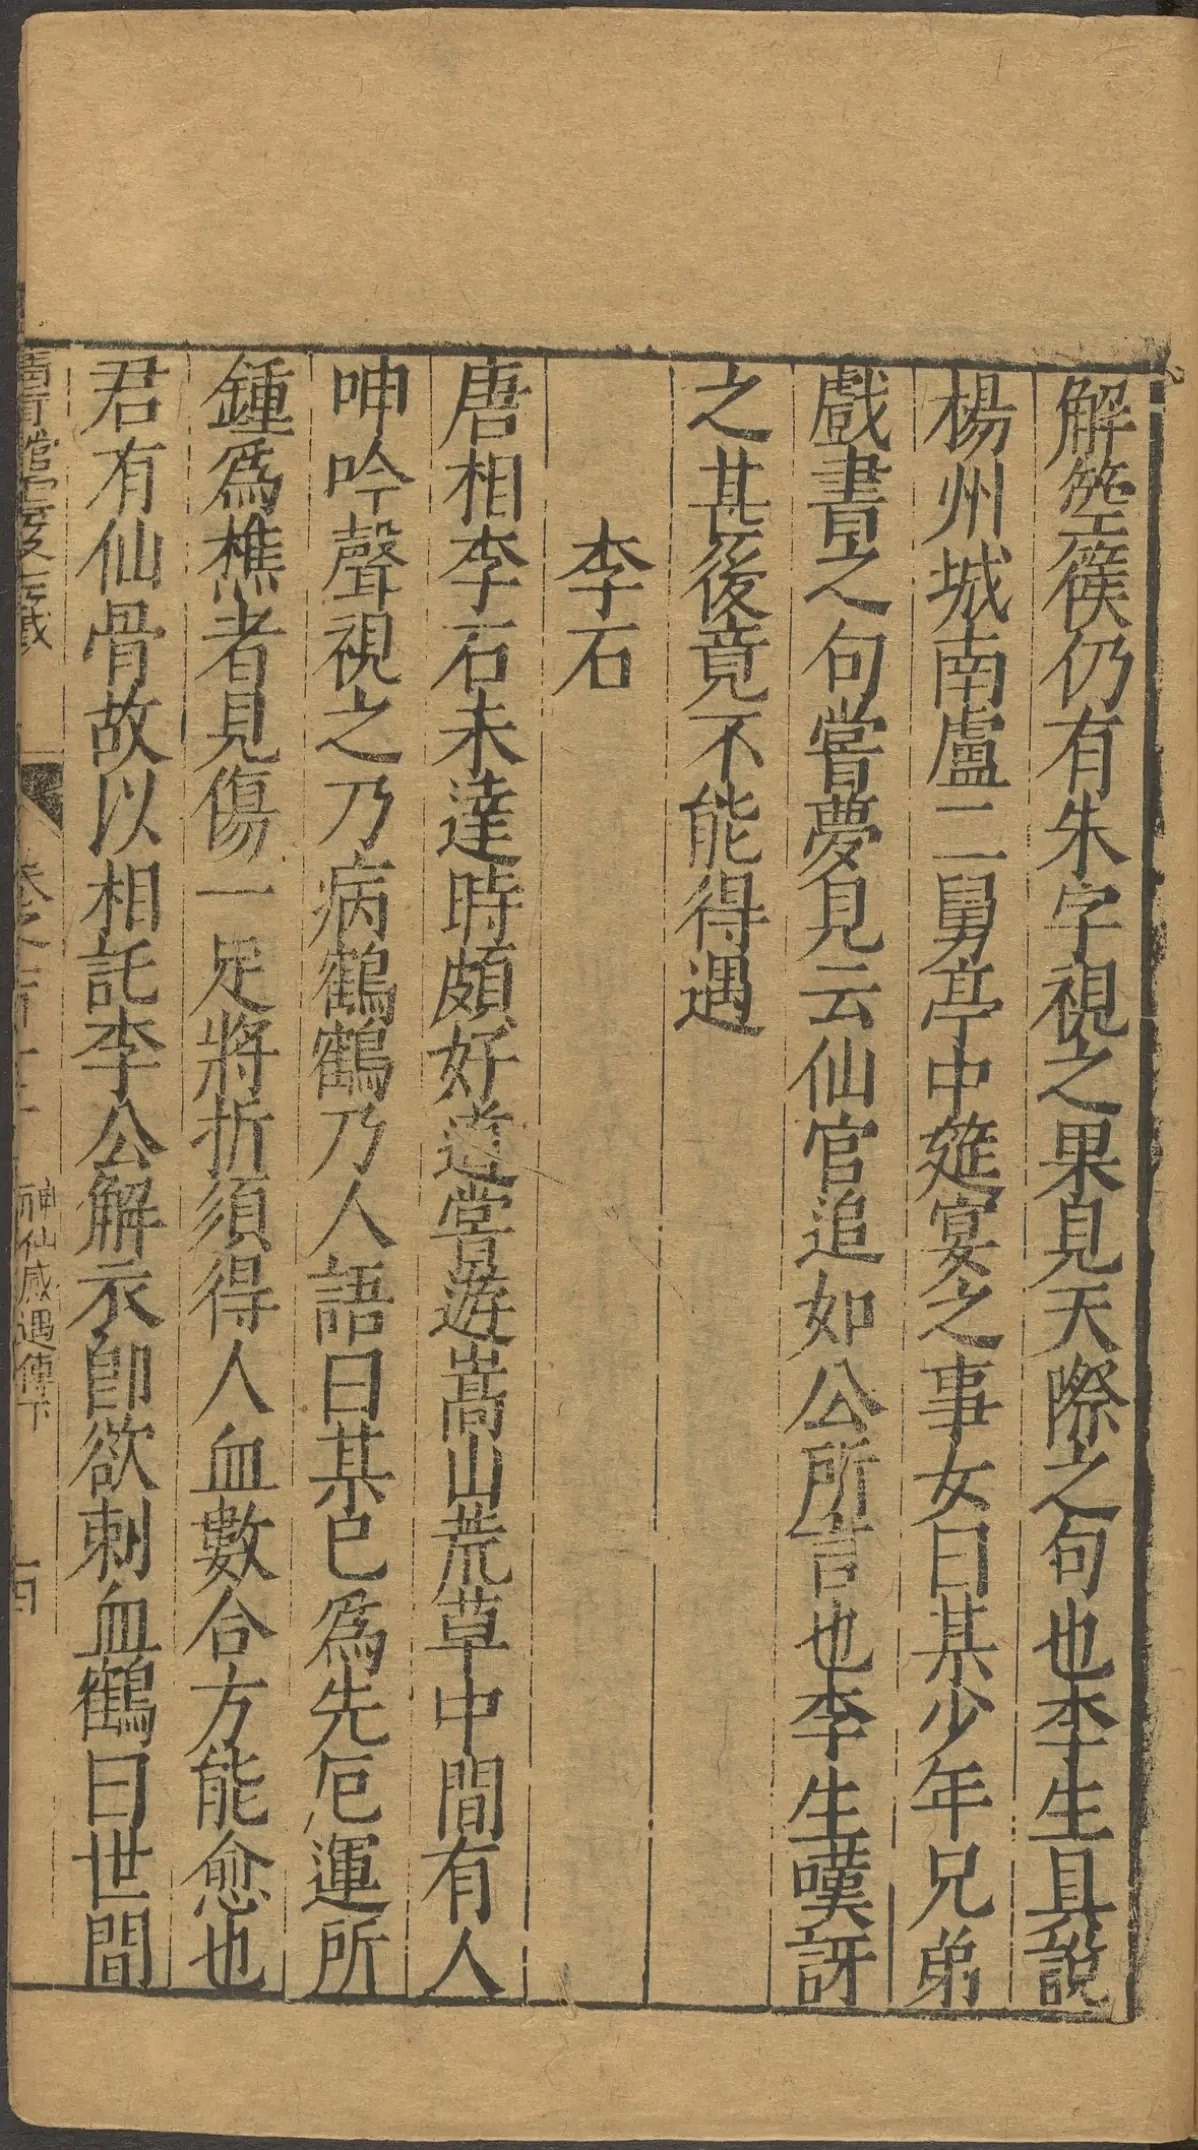 解箜篌仍有朱字視之果見天際之句也李生具說
楊州城南盧二舅亭中筵宴之事女曰某少年兄弟
戲書之句嘗夢見云仙官追如公所言也李生嘆訝
之甚後竟不能得遇
李石
唐相李石未達時頗好道嘗遊嵩山荒草中間有人
呻吟聲視之乃病鶴鶴乃人語曰某已爲先厄運所
鍾爲樵者見傷一足將折須得人血數合方能愈也
君有仙骨故以相託李公解衣卽欲刺血鶴曰世間
卷之 神仙感遇傳下